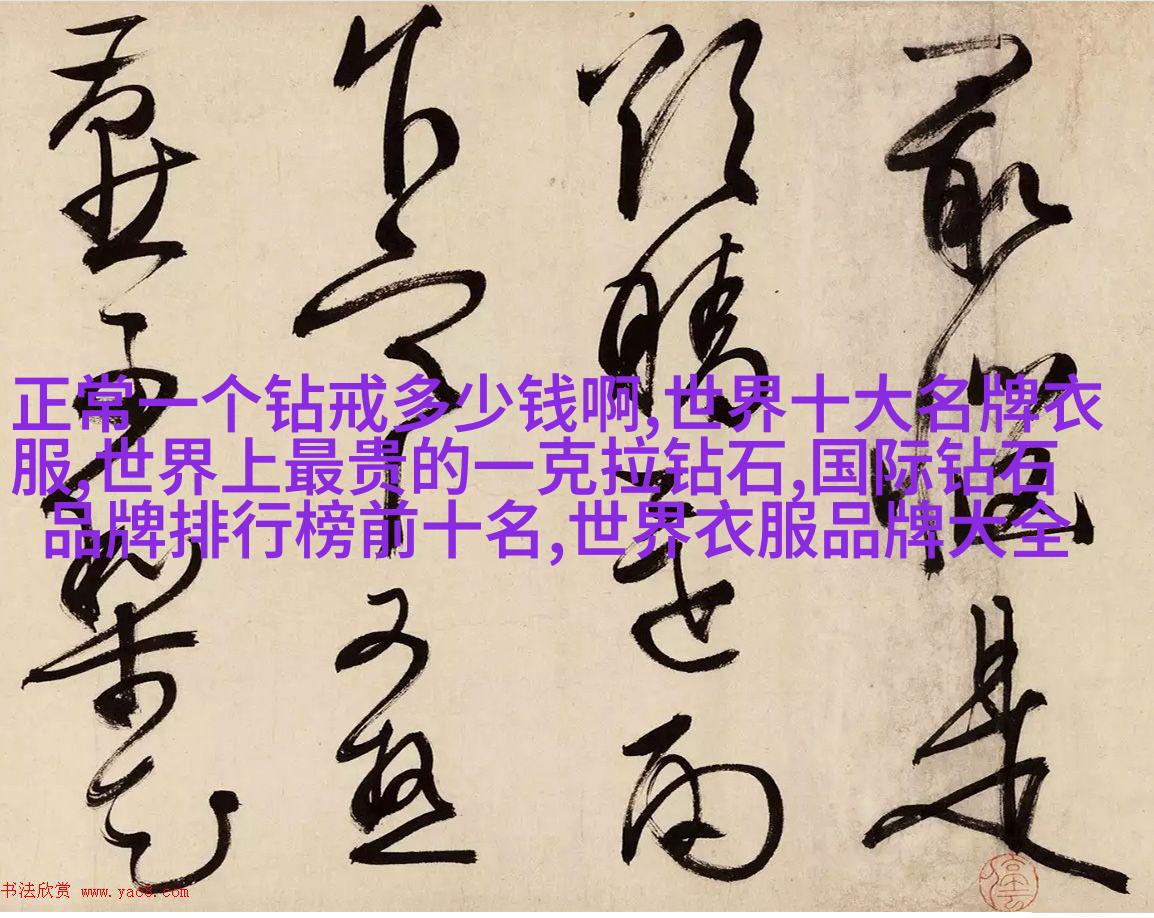 最惱是
晴還雨
乍寒又熱
燕子梨花
正常一个钻戒多少钱啊,世界十大名牌衣
服,世界上最贵的一克拉钻石,国际钻石
品牌排行榜前十名,世界衣服品牌大全
书法欣赏 www.yac8.com